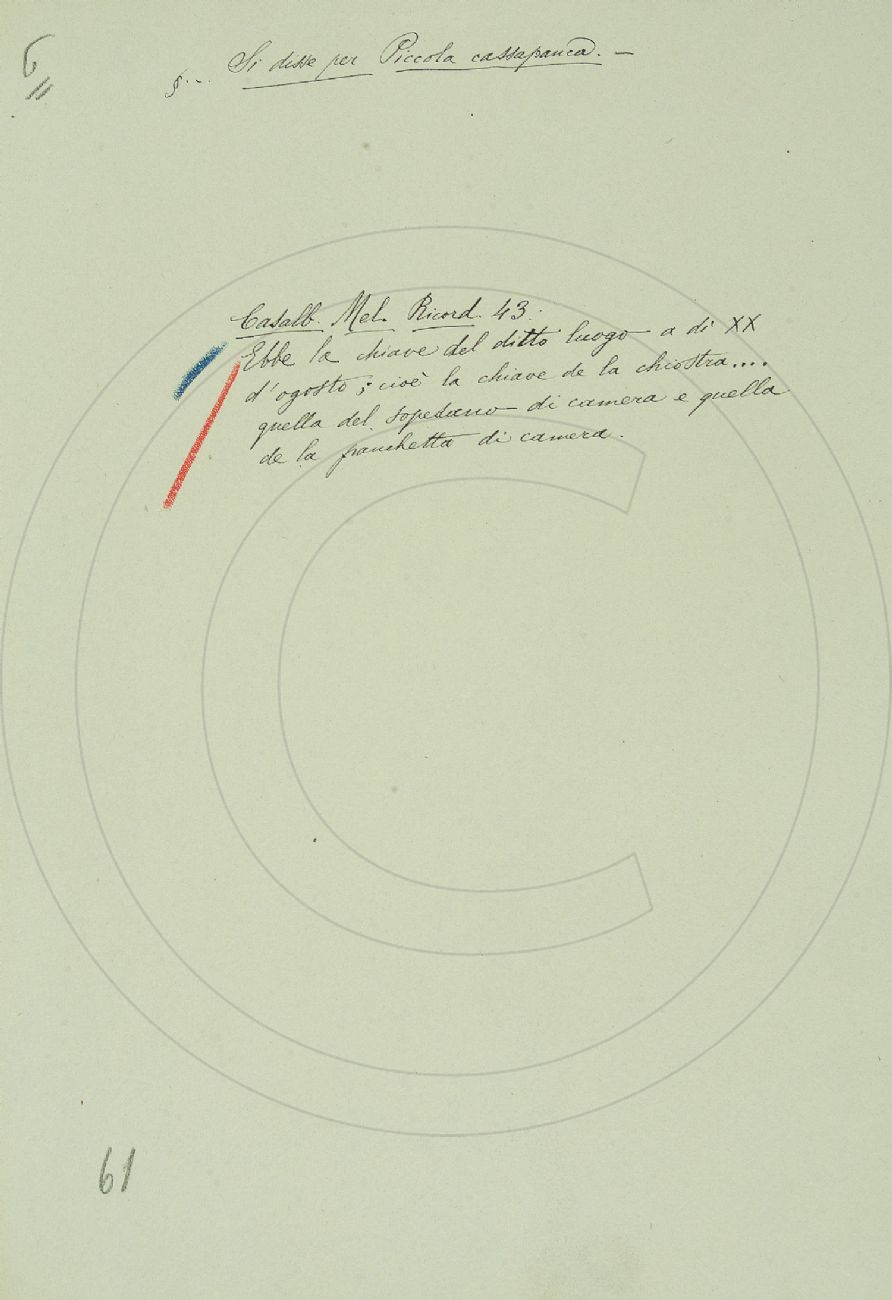 6
§... Si disse per Piccola cassapanca. —
Casalb. Mel. Ricord. 43.
Ebbe la chiave del ditto luogo a di XX
d'ogosto; cioè la chiave de la chiostra....
quella del sopedano di camera e quella
de la panchetta di camera.
61